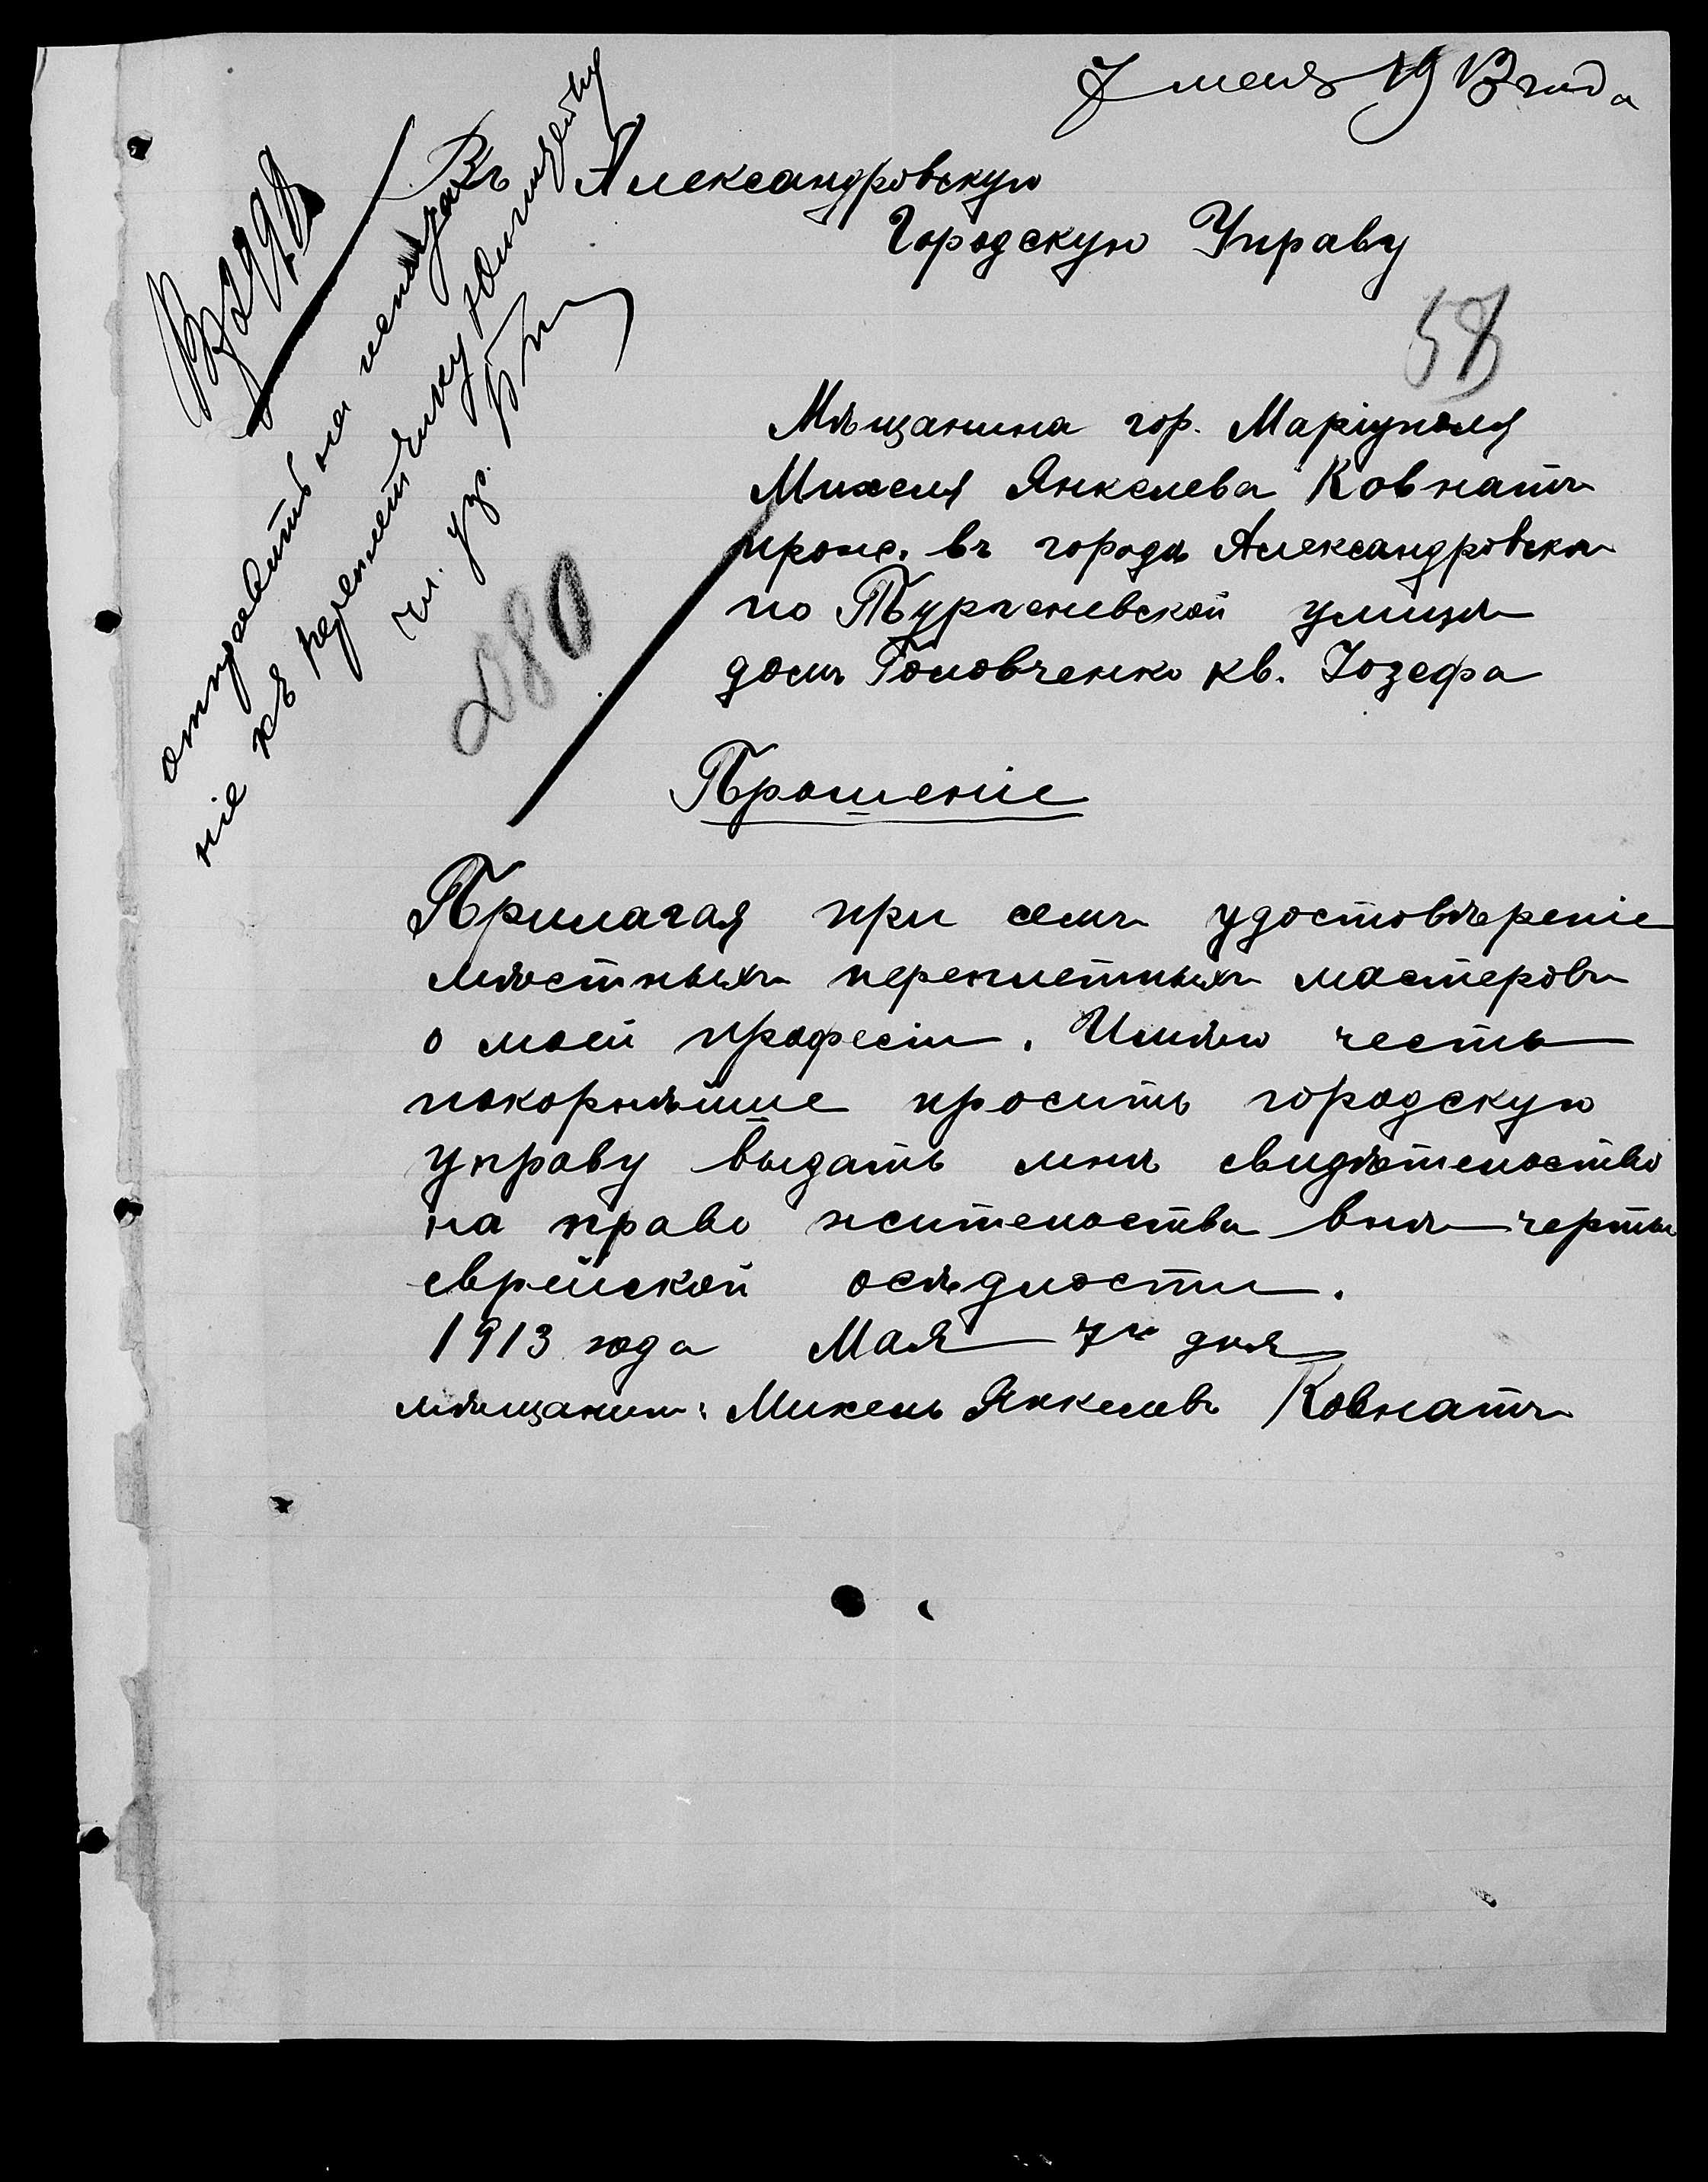 7 мая 1913 года
Въ Александровскую
Городскую Управу
58
Мѣщанина гор. Маріуполя
Михеля Янкелева Ковнатъ
прож. въ городѣ Александровскѣ
по Тургеневской улицѣ
домъ Головченко кв. Іозефа
отправить на испыта
ніе къ переплетчику
чл. упр.
280
Прошеніе
Прилагая при семъ удостовѣреніе
мѣстныхъ переплетныхъ мастеровъ
о моей професіи. Имѣю честь
покорнѣйше просить городскую
управу выдать мнѣ свидѣтельство
на право жительства внѣ черты
еврейской осѣдлости.
1913 года Мая 7го дня
мѣщанинъ: Михель Янкелевъ Ковнатъ